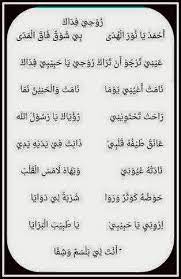 رُوْحِيْ فِدَاكَ
أَحْمَدْ يَا نُوْرَ الْهُدَى بِيْ شَوْقٌ فَاقَ الْمَدَى
عَيْنِيْ تَرْجُوْ أَنْ تَرَاكَ رُوْحِيْ يَا حَبِيْبِيْ فِدَاكَ
نَامَتْ أَعْيُنِيْ يَوْمًا نَامَتْ وَالْحَنِيْنُ نَمَا
رَاحَتْ تَحْتَوِيْنِيْ رُؤْيَاكَ يَا رَسُوْلَ الله
عَانَقَ طَيْفُهُ قَلْبِيْ ذَابَتْ فِي يَدَيْهِ يَدِيْ
نَادَتْهُ عُيُوْنِيْ وَبِهَاهُ لَامَسَ الْقَلْبَ
حَوْضُهُ كَوْثَرْ وَرَوَا شَرْبَةٌ لِيْ دَوَايَا
اِرْوِنِيْ يَا حَبِيْبِيْ يَا طَبِيْبَ الْبَرَايَا
أَنْتَ لِيْ بَلْسَمْ وَشِفَا